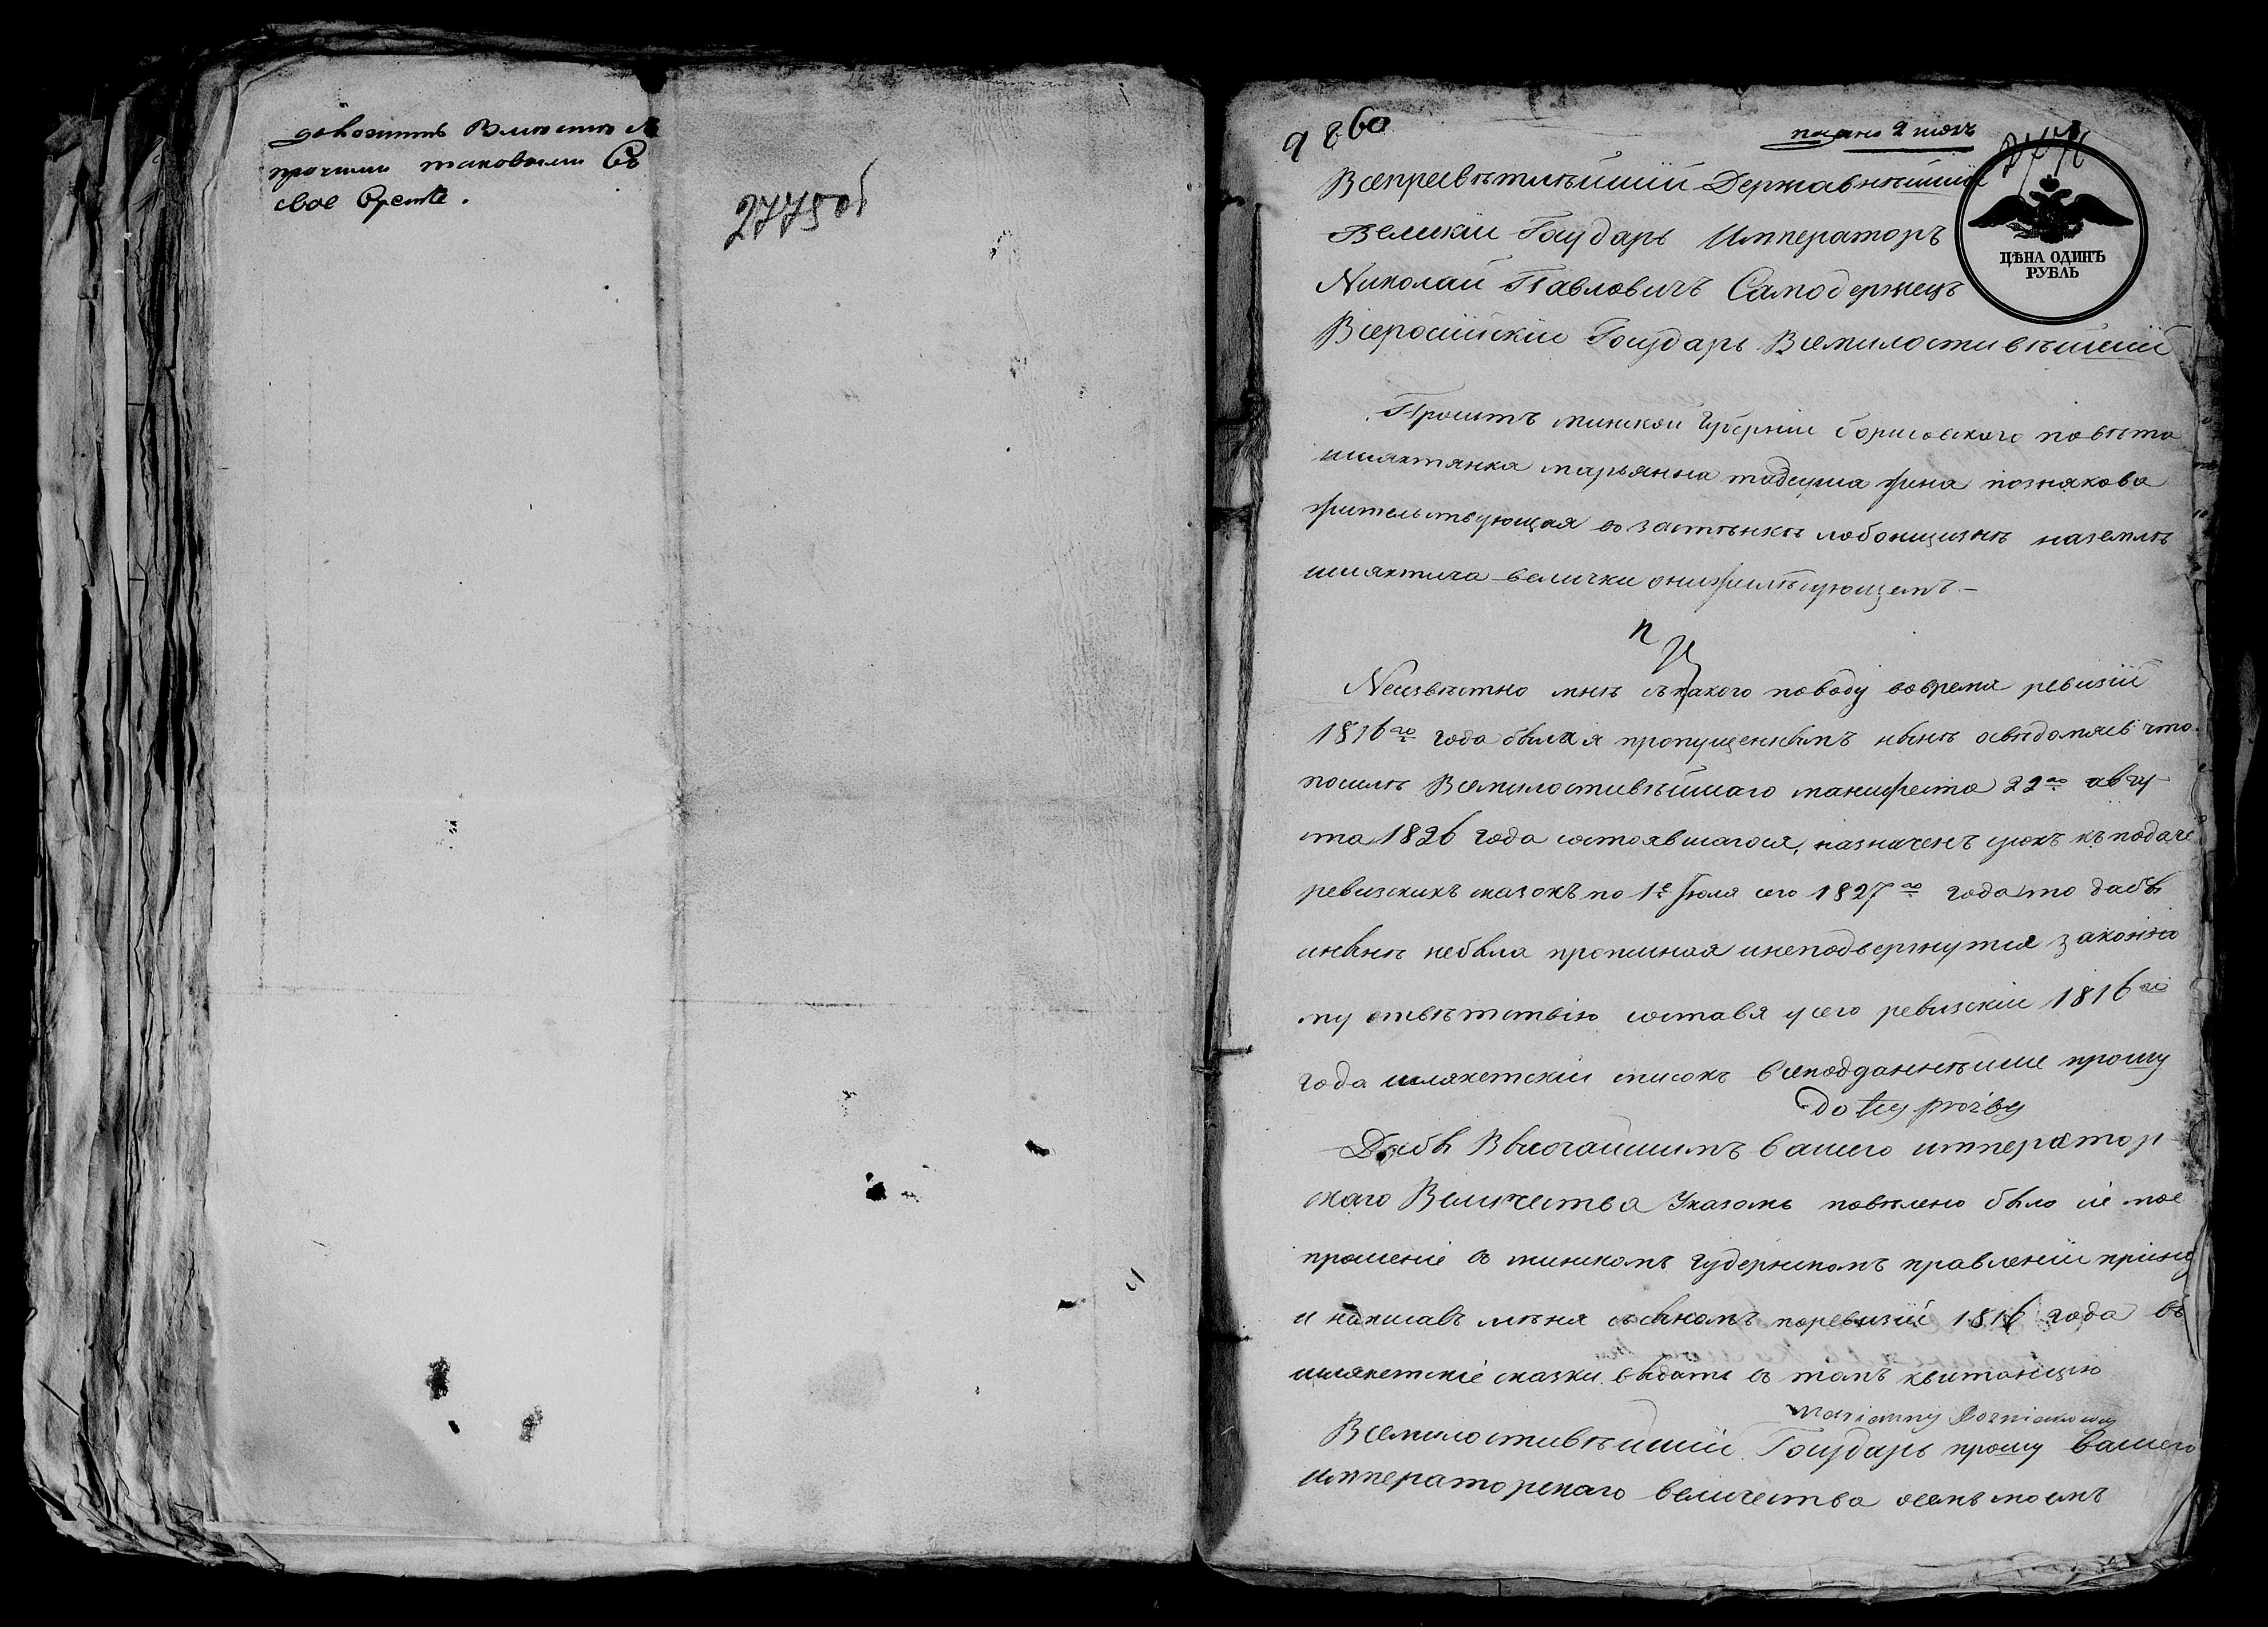 доложить Вместе съ
прочими таковыми Въ
свое Время.
2775об
9860
подано 2 июля
2776
ЦѢНА ОДИНЪ
РУБЛЬ
Всепресвѣтлѣйшій Державнѣйшій
Великій Государь Императоръ
Николай Павловичъ Самодержецъ
Всеросійскій Государь Всемилостивѣйшій
Проситъ минской Губерніи борисовского повѣта
шляхтянка марьянна тадеуша жена познякова
жительствующая въ застѣнкѣ наземлѣ
шляхтича велички онижеслѣдующемъ
п
Неизвѣстно мнѣ съ какого поводу вовремя ревизіи
1816го года была я пропущенныхъ нынѣ освѣдомясь что
посилѣ Всемилостивѣйшаго манифеста 22го авгу-
ста 1826 года состоявшагося, назначенъ срокъ къ подаче
ревизскихъ сказокъ по 1е Іюля сего 1827го года то дабы
инынѣ небыла прописная инеподвергнутся законно
му отвѣтствію составя усего ревизскіи 1816го
года шляхетскіи списокъ всеподданнѣйше прошу
Do tey prozby
Дабы Высочайшимъ вашего император
скаго Величества Указомъ повѣлено было сіе мое
прошеніе в минскомъ губернскомъ правленіи принять
и написавъ мѣня съ сыномъ поревизіи 1816 года въ
шляхетскіе сказки выдать в томъ квитанцію
Marianny Pozniakowy
Всемилостивѣйшій Государь прошу вашего
императорскаго величества осемъ моемъ